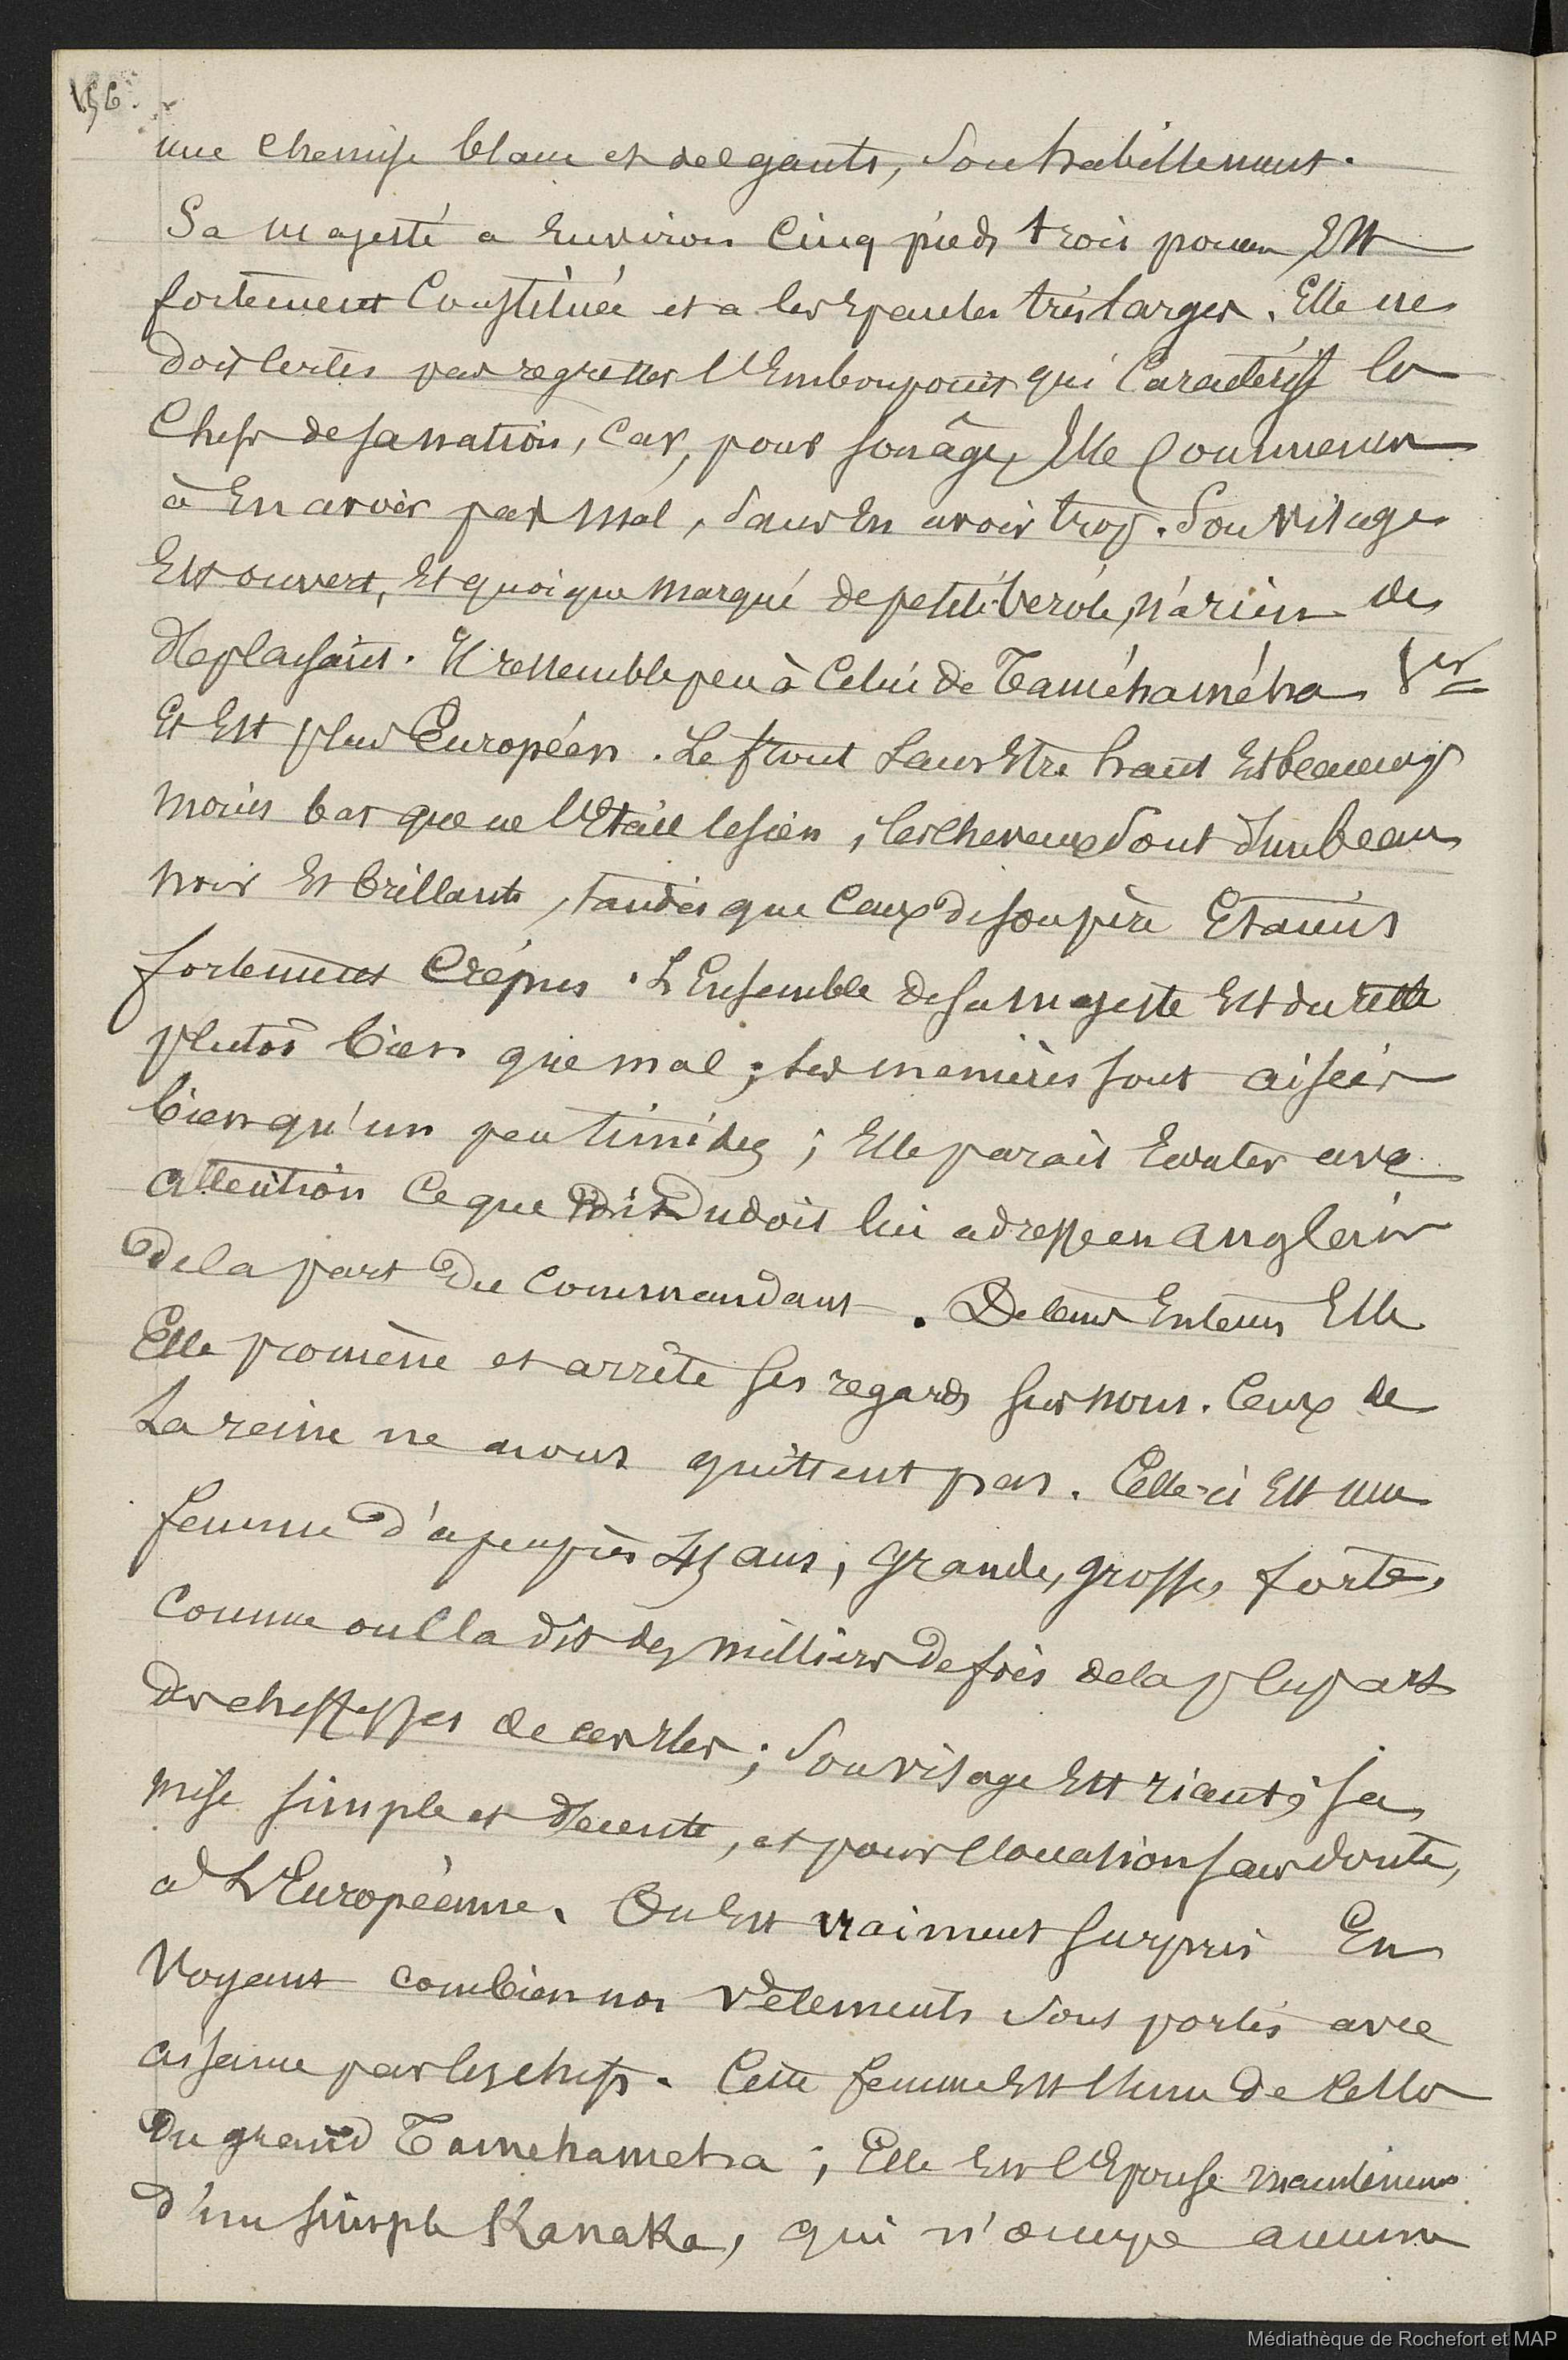 156.
une chemise blanc et des gants, son habillement.
Sa majesté a Environ Cinq pieds trois pouces, Est
fortement Constituée et a les Epaules très larges. Elle ne
doit Certes pas regretter l'Embonpoint qui Caractérise les
Chefs de sa nation, Car, pour son âge, Elle Commence
à En avoir pas mal, sans En avoir trop. Son visage
Est ouvert, Et quoique marqué de petite vérole, n'a rien de
déplaisant. Il ressemble peu à Celui de Taméhaméha 1er
Et Est plus Européen. Le front sans Etre haut Est beaucoup
moins bas que ne l'Etait le sien, les cheveux sont d'un beau
noir Et brillants, tandis que Ceux de son père Etaient
fortement Crépus. L'Ensemble de sa majesté Est du reste
plutôt bien que mal; ses manières sont aisées
bien qu'un peu timides; Elle parait Ecouter avec
attention Ce que Dudoit lui adresse en anglais
de la part du Commandant. De tems En tems Elle
Elle promène et arrête ses regards sur nous. Ceux de
La reine ne nous quittent pas. Celle-ci Est une
femme d'apeuprès 45 ans, grande, grosse, forte,
Comme on l'a dit des milliers de fois de la plupart
des cheffesses de ces Iles; son visage Est riant, sa
mise simple et décente, et pour l'occasion sans doute,
à L'Européenne. On Est vraiment surpris En
Voyant combien nos vêtements sont portés avec
aisance par les chefs. Cette femme Est l'une de celles
du grand Tamehameha; Elle Est l'Epouse maintenant
d'un simple Kanaka, qui n'occupe aucune
Médiathèque de Rochefort et MAP